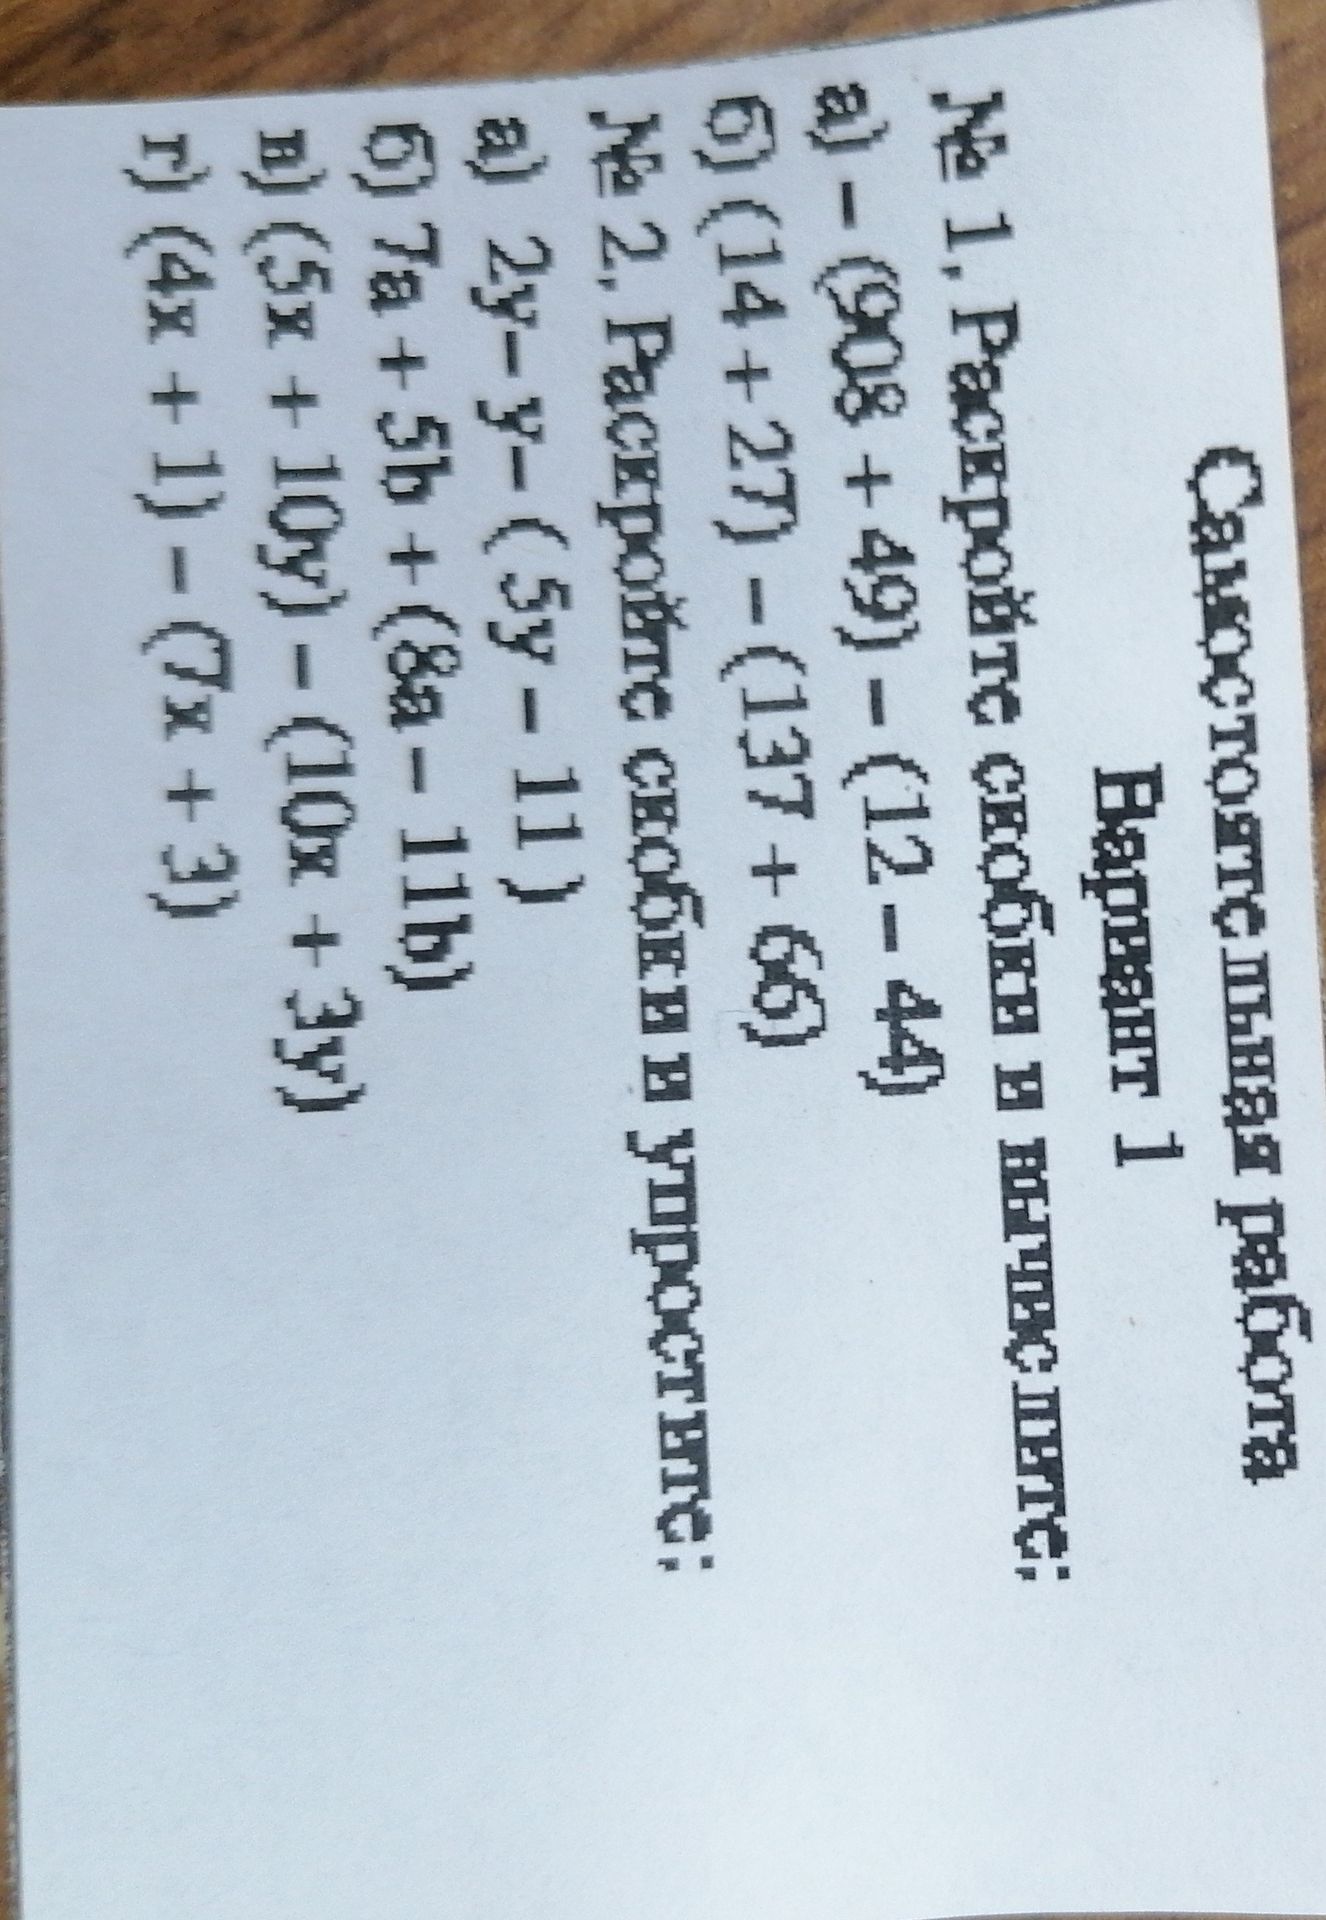 Самостоятельная работа
Вариант 1
№ 1. Раскройте скобки и вычислите:
а) – (908 + 49) – (12 – 44)
б) (14 + 27) – (137 + 66)
№ 2. Раскройте скобки и упростите:
а) 2у– у– ( 5у – 11 )
б) 7а + 5b + (8а – 11b)
в) (5х + 10у) – (10х + 3у)
г) (4х + 1) – (7х + 3)